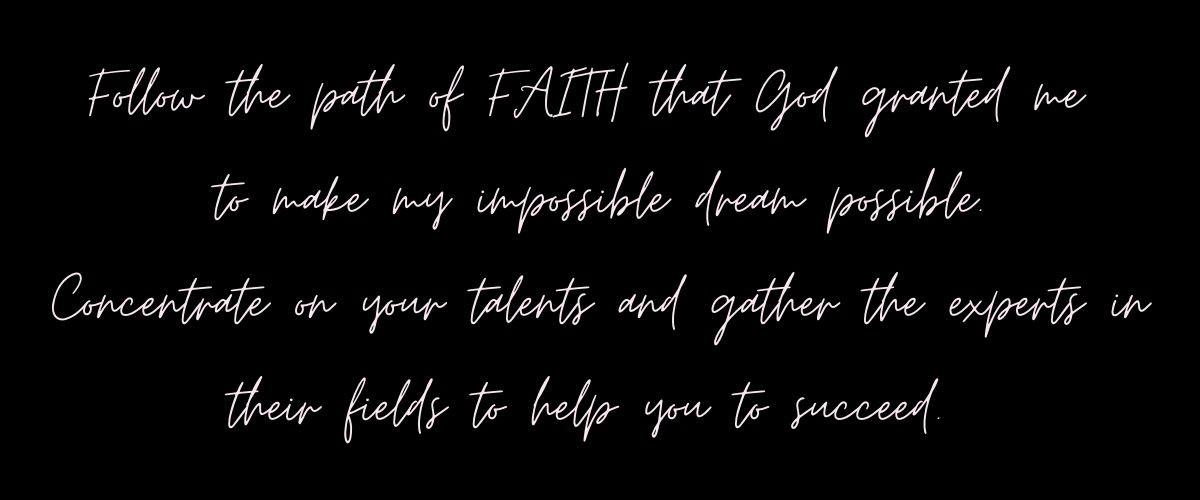 Follow the path of FAITH that God granted me
to make my impossible dream possible.
Concentrate on your talents and gather the experts in
their fields to help you to succeed.